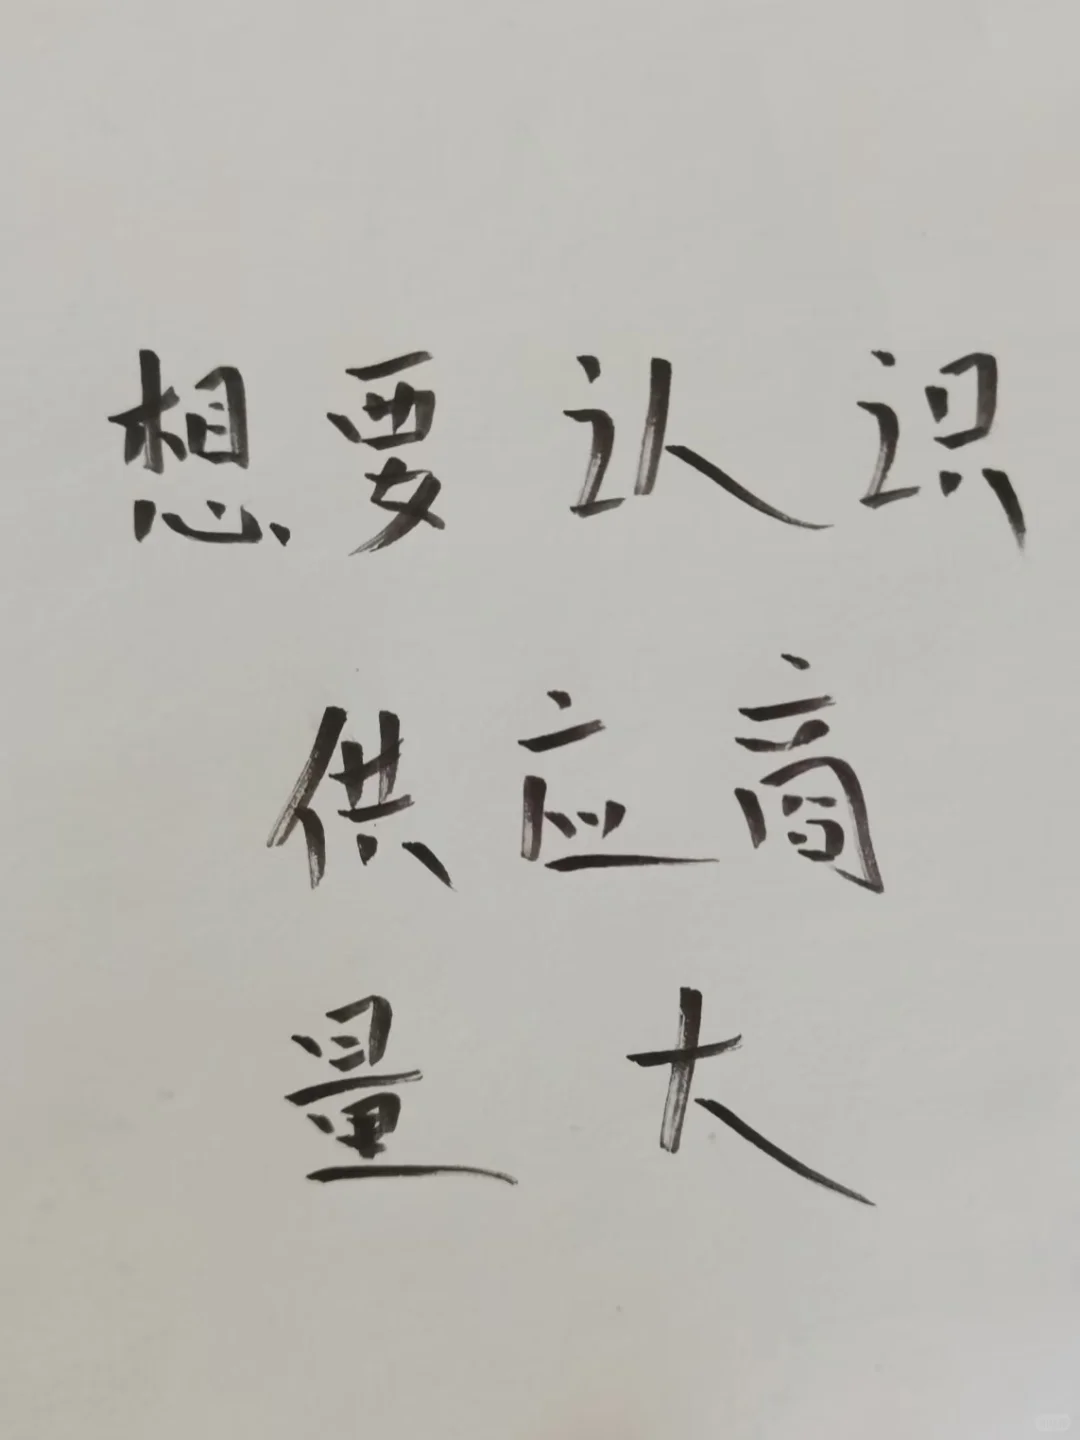 想要认识
供应商
量大